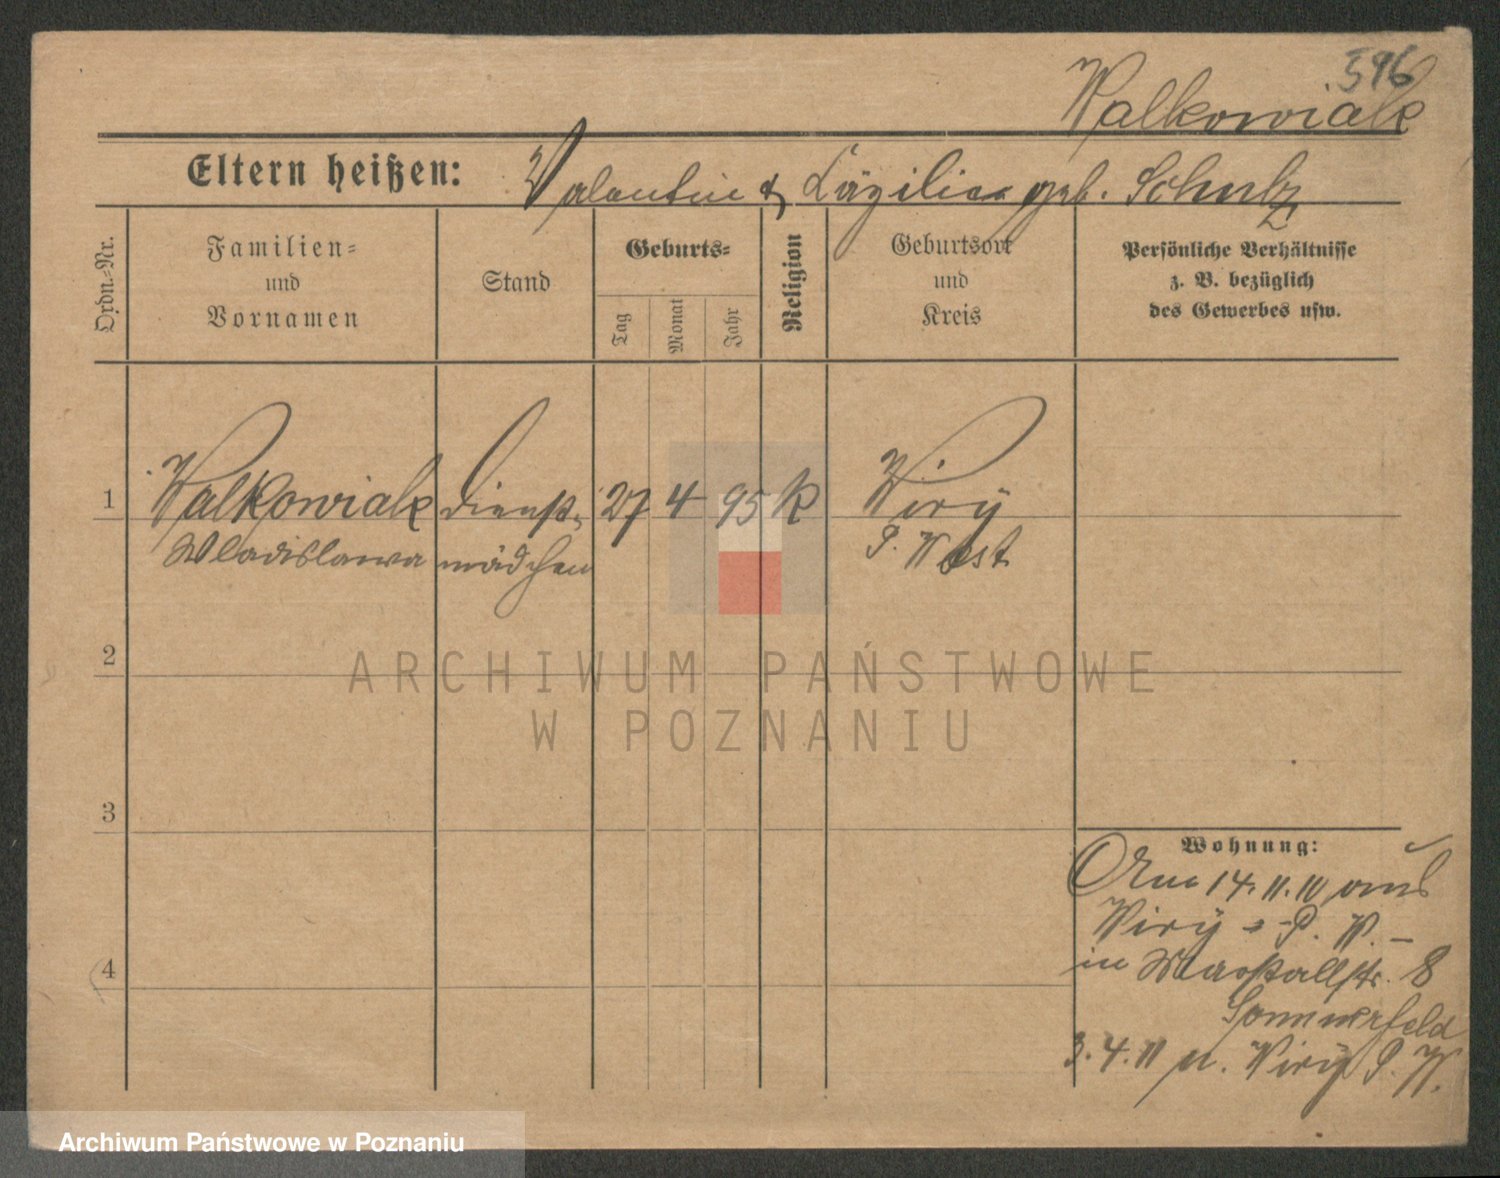 596
Walkowiak
Eltern heißen: Valentin & Cäzilia geb. Schulz
Ordn.-Nr.
Familien-
und
Vornamen
Stand
Geburts-
Tag
Monat
Jahr
Religion
Geburtsort
und
Kreis
Persönliche Verhältnisse
z. B. bezüglich
des Gewerbes usw.
1 Walkowiak Dienst- 27 4 95 K Wiry
Wladislawa mädchen P. West
2
ARCHIWUM PAŃSTWOWE
W POZNANIU
3
4
Wohnung:
Am 14.11.10 aus
Wiry - P. W. -
in Marstallstr. 8
Sommerfeld
3.4.11 n. Wiry P. W.
Archiwum Państwowe w Poznaniu